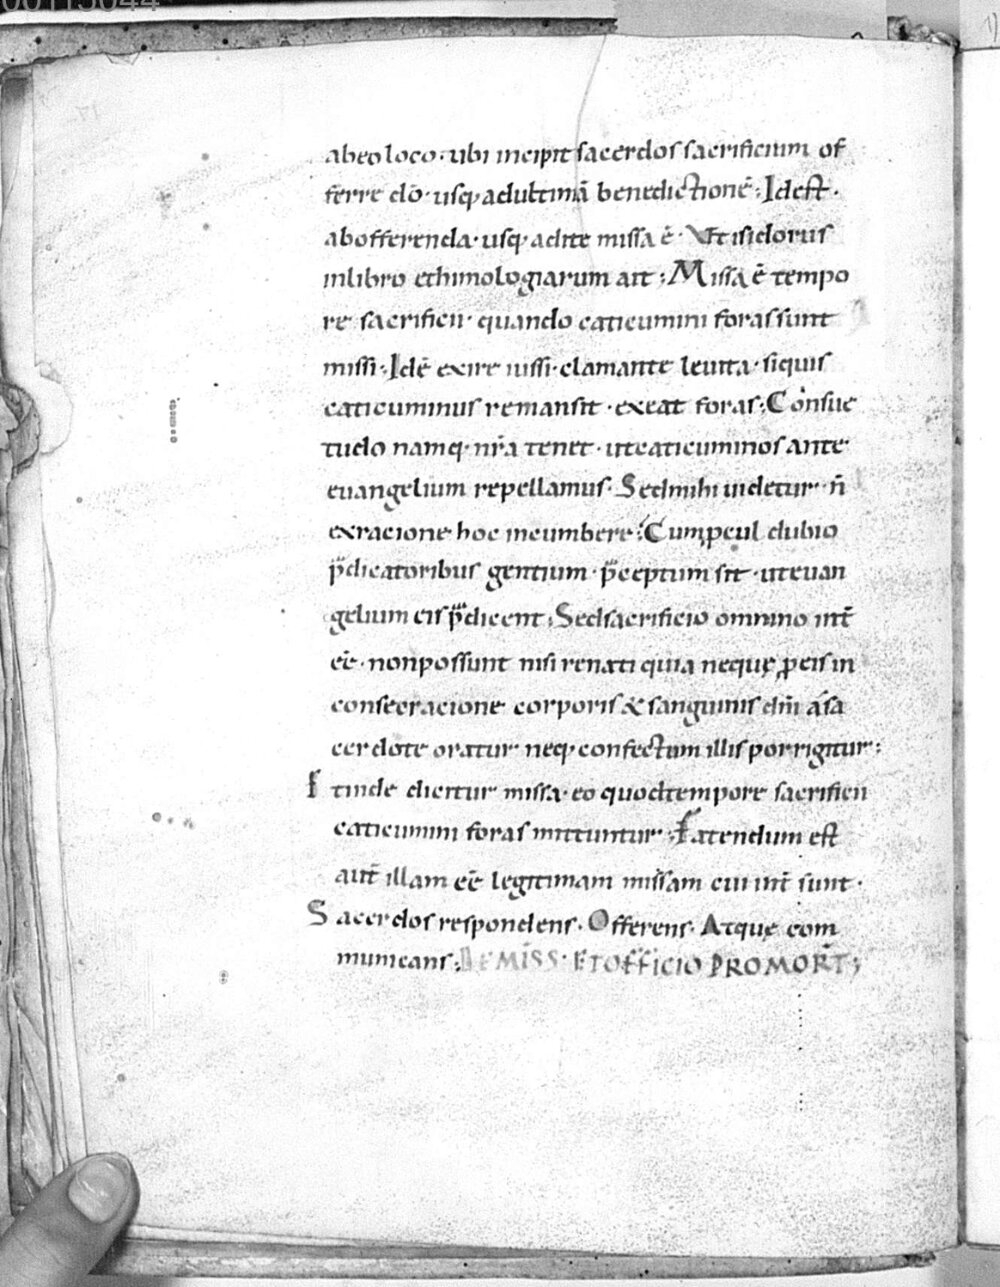 00113044
abeo loco· ubi incipit sacerdos sacrificium of
ferre dō· usq; adultimā benedictionē; Idest·
abofferenda· usq; adite missa ē· Vt isidorus
inlibro ethimologiarum ait; Missa ē tempo
re sacrificii· quando caticumini foras sunt
missi; Idē exire iussi· clamante levita· siquis
caticuminus remansit· exeat foras; Consue
tudo namq; nr̄a tenet· ut caticuminos ante
euangelium repellamus· Sed mihi uidetur n̄
exracione hoc incumbere; Cum ꝓcul dubio
p̄dicatoribus gentium· p̄ceptum sit· ut euan
gelium eis p̄dicent; Sed sacrificio omnino int̄
eē· non possunt nisi renati quia neque ꝓ eis in
consecracione corporis & sanguinis dn̄i a sa
cerdote oratur neq; confectum illis porrigitur;
Et inde dicitur missa· eo quod tempore sacrificii
caticumini foras mittuntur; Fatendum est
aut̄ illam eē legitimam missam cui int̄ sunt·
Sacerdos respondens· Offerens· Atque com
municans; DE MISS· ET OFFICIO PRO MORT̄;